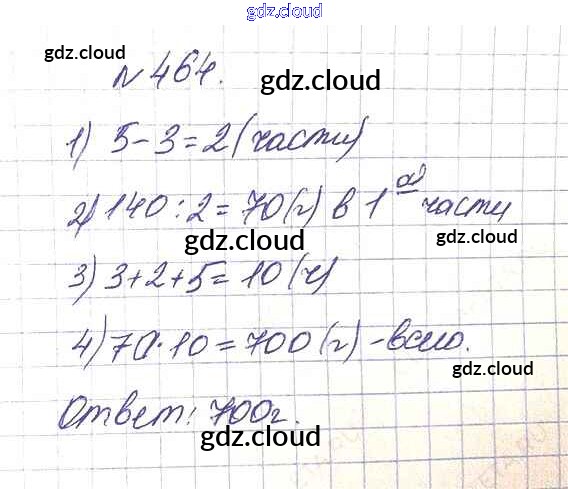 gdz.cloud
gdz.cloud
№ 464.
gdz.cloud
1) 5-3=2(части)
gdz.cloud
2) 140:2=70(г) в 1ой части
gdz.cloud
3) 3+2+5=10(ч)
4) 70·10=700(г)-всего.
gdz.cloud
Ответ: 700г.
gdz.cloud